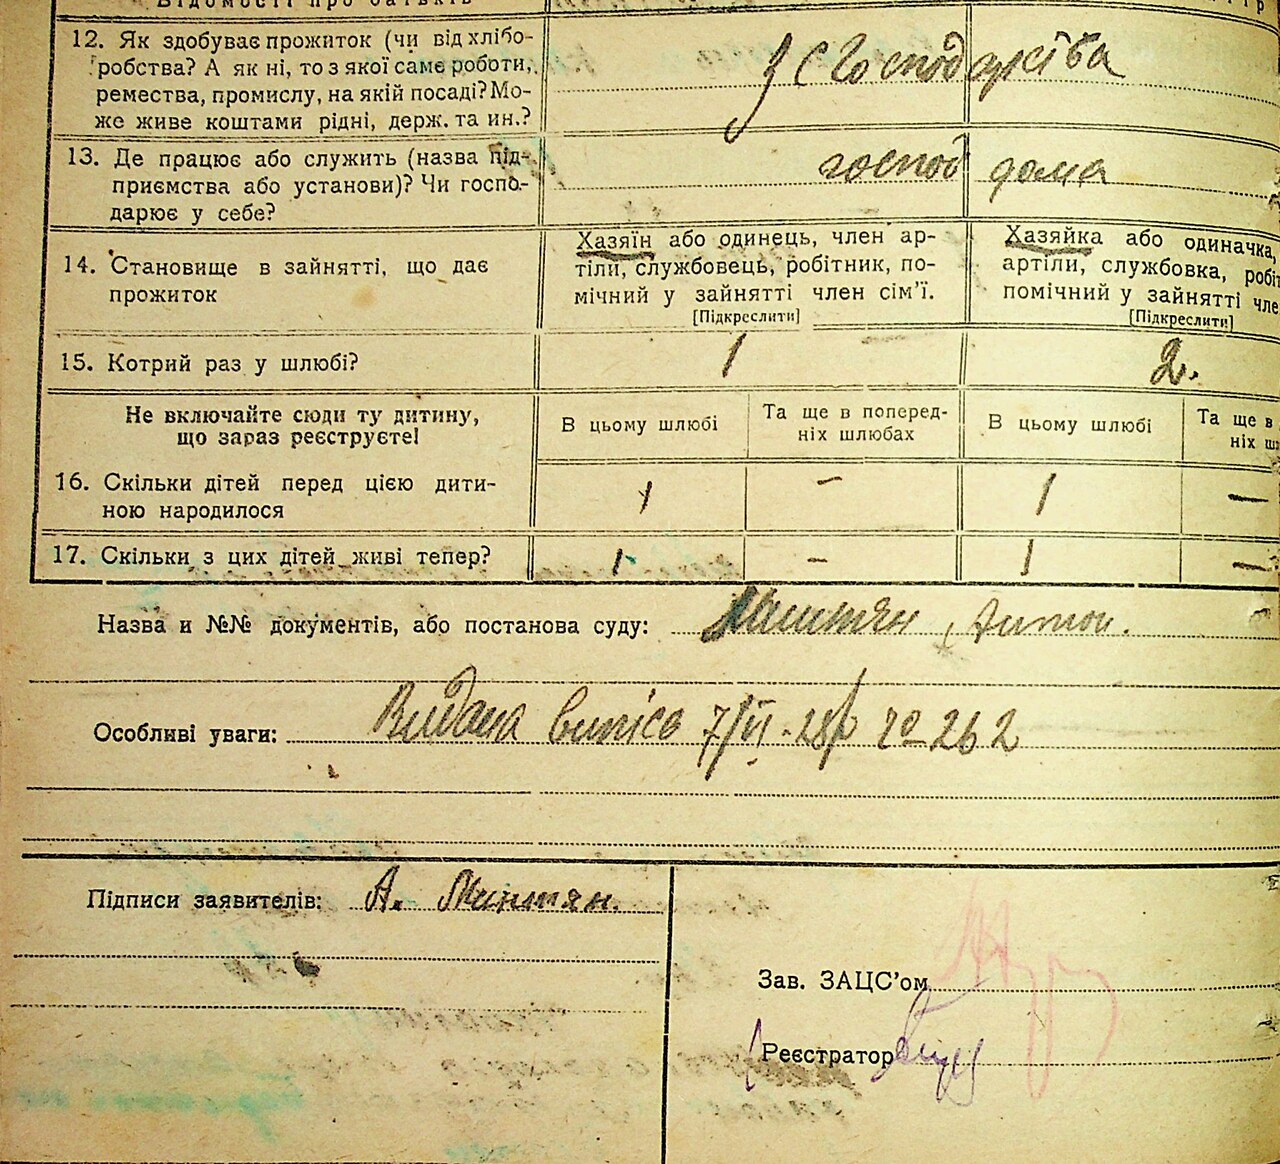 Відомості про батьків
12. Як здобуває прожиток (чи від хлібо-
робства? А як ні, то з якої саме роботи,
ремества, промислу, на якій посаді? Мо-
же живе коштами рідні, держ. та ин.?
з С Господарства
13. Де працює або служить (назва під-
приємства або установи)? Чи госпо-
дарює у себе?
господ дома
14. Становище в зайнятті, що дає
прожиток
Хазяїн або одинець, член ар-
тіли, службовець, робітник, по-
мічний у зайнятті член сім'ї.
[Підкреслити]
Хазяйка або одиначка,
артіли, службовка, робіт
помічний у зайнятті чле
[Підкреслити]
15. Котрий раз у шлюбі?
1
2.
Не включайте сюди ту дитину,
що зараз реєструєте!
В цьому шлюбі
Та ще в поперед-
ніх шлюбах
В цьому шлюбі
Та ще в
ніх ш
16. Скільки дітей перед цією дити-
ною народилося
1 - 1 -
17. Скільки з цих дітей живі тепер?
1 - 1 -
Назва и №№ документів, або постанова суду: Антон.
Особливі уваги: Видана випісь 7/VI-28р № 262
Підписи заявителів: А.
Зав. ЗАЦС'ом
Реєстратор